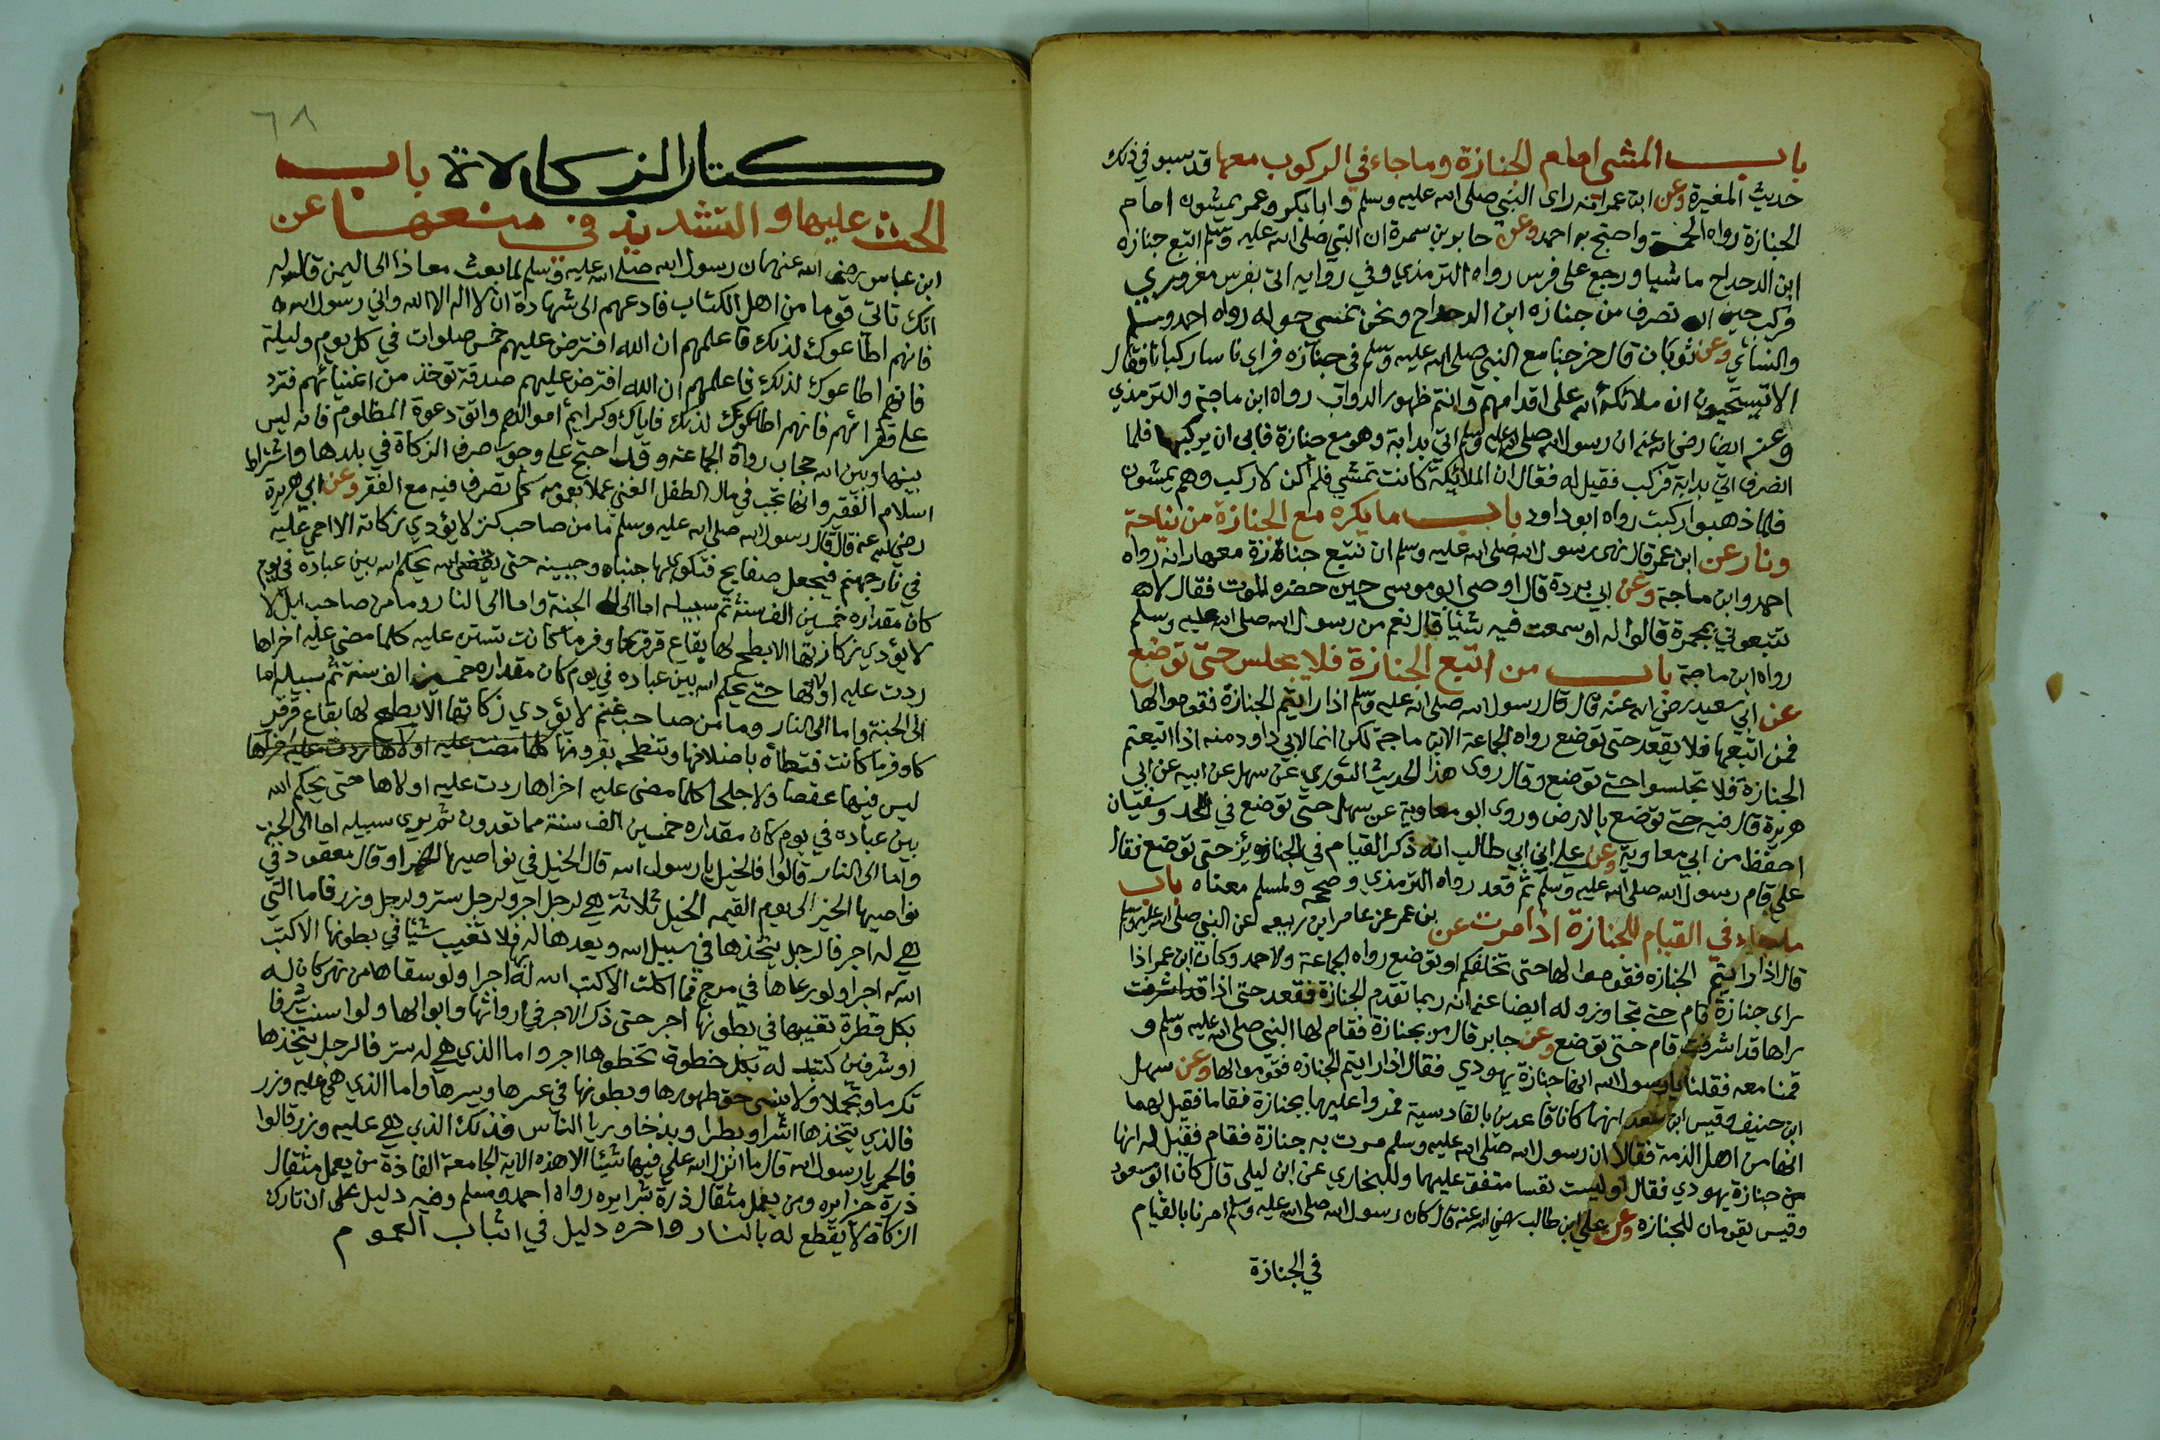 باب المشي امام الجنازة وما جاء في الركوب معها قد سبق في ذلك
حديث المغيرة وعن ابن عمر انه راى النبي صلى الله عليه وسلم وابا بكر وعمر يمشون امام
الجنازة رواه الخمسة واحتج به احمد وعن جابر بن سمرة ان النبي صلى الله عليه وسلم اتبع جنازة
ابن الدحداح ماشيا ورجع على فرس رواه الترمذي وفي رواية اتى بفرس معروري
فركب حين انصرف من جنازة ابن الدحداح ونحن نمشي حوله رواه احمد ومسلم
والنسائي وعن ثوبان قال خرجنا مع النبي صلى الله عليه وسلم في جنازة فراى ناسا ركبانا فقال
الا تستحيون ان ملائكة الله على اقدامهم وانتم ظهور الدواب رواه ابن ماجة والترمذي
وعنه ايضا رضي الله عنه ان رسول الله صلى الله عليه وسلم اتي بدابة وهو مع جنازة فابى ان يركبها فلما
انصرف اتي بدابة فركب فقيل له فقال ان الملائكة كانت تمشي فلم اكن لاركب وهم يمشون
فلما ذهبوا ركبت رواه ابو داود باب ما يكره مع الجنازة من نياحة
ونار عن ابن عمر قال نهى رسول الله صلى الله عليه وسلم ان نتبع جنازة معها رانه رواه
احمد وابن ماجة وعن ابي بردة قال اوصى ابو موسى حين حضره الموت فقال لا
تتبعوني بمجمرة قالوا له او سمعت فيه شيئا قال نعم من رسول الله صلى الله عليه وسلم
رواه ابن ماجة باب من اتبع الجنازة فلا يجلس حتى توضع
عن ابي سعيد رضي الله عنه قال قال رسول الله صلى الله عليه وسلم اذا رايتم الجنازة فقوموا لها
فمن اتبعها فلا يقعد حتى توضع رواه الجماعة الا ابن ماجة لكن انما لابي داود منه اذا اتبعتم
الجنازة فلا تجلسوا حتى توضع وقال روى هذا الحديث الثوري عن سهل عن ابيه عن ابي
هريرة قال فيه حتى توضع بالارض وروى ابو معاوية عن سهل حتى توضع في اللحد وسفيان
احفظ من ابي معاوية وعن علي ابن ابي طالب انه ذكر القيام في الجنائز حتى توضع فقال
علي قام رسول الله صلى الله عليه وسلم ثم قعد رواه الترمذي وصححه ولمسلم معناه باب
ما جاء في القيام للجنازة اذا مرت عن بن عمر عن عامر ابن ربيعه عن النبي صلى الله عليه وسلم
قال اذا رايتم الجنازه فقوموا لها حتى تخلفكم او توضع رواه الجماعة ولاحمد وكان ابن عمر اذا
راى جنازة قام حتى تجاوزه وله ايضا عنه انه ربما تقدم الجنازة فقعد حتى اذا قد اشرفت
راها قد اشرفت قام حتى توضع وعن جابر قال مر بجنازة فقام لها النبي صلى الله عليه وسلم و
قمنا معه فقلنا يا رسول الله انها جنازة يهودي فقال اذا رايتم الجنازه فقوموا لها وعن سهل
ابن حنيف وقيس ابن سعد انهما كانا قاعدين بالقادسية فمروا عليها بجنازة فقاما فقيل لهما
انها من اهل الذمة فقالا ان رسول الله صلى الله عليه وسلم مرت به جنازة فقام فقيل له انها
من جنازة يهودي فقال اوليست نفسا متفق عليهما وللبخاري عن ابن ليلى قال كان ابو مسعود
وقيس يقومان للجنازه وعن علي ابن طالب رضي الله عنه قال كان رسول الله صلى الله عليه وسلم امرنا بالقيام
في الجنازة
٦٨
كتاب الزكاة باب
الحث عليها والتشديد في منعها عن
ابن عباس رضي الله عنهما ان رسول الله صلى الله عليه وسلم لما بعث معاذا الى اليمن قال له
انك تاتي قوما من اهل الكتاب فادعهم الى شهادة ان لا اله الا الله واني رسول الله
فانهم اطاعوك لذلك فاعلمهم ان الله افترض عليهم خمس صلوات في كل يوم وليلة
فانهم اطاعوك لذلك فاعلمهم ان الله افترض عليهم صدقة توخذ من اغنيائهم فترد
على فقرائهم فانهم اطاعوك لذلك فاياك وكرايم اموالهم واتق دعوة المظلوم فانه ليس
بينها وبين الله حجاب رواه الجماعة وقد احتج على وجوب صرف الزكاة في بلدها واشتراط
اسلام الفقير وانها تجب في مال الطفل الغني عملا بعمومه كما تصرف فيه مع الفقر وعن ابي هريرة
رضي الله عنه قال قال رسول الله صلى الله عليه وسلم ما من صاحب كنز لا يؤدي زكاته الا احمي عليه
في نار جهنم فيجعل صفايح فتكوى بها جنباه وجبينه حتى يحكم الله بين عباده في يوم
كان مقداره خمسين الف سنة ثم سبيله اما الى الجنة واما الى النار وما من صاحب ابل لا
لا يؤدي زكاتها الا بطح لها بقاع قرقر كاوفر ما كانت تستن عليه كلما مضى عليه اخراها
ردت عليه اولاها حتى يحكم الله بين عباده في يوم كان مقداره خمسين الف سنة ثم سبيله اما
الى الجنة واما الى النار وما من صاحب غنم لا يؤدي زكاتها الا بطح لها بقاع قرقر
كاوفر ما كانت فتطاه باضلافها وتنطحه بقرونها كلما مضت عليه اولاها ردت عليه اخراها
ليس فيها عقصا ولا جلحا كلما مضى عليه اخراها ردت عليه اولاها حتى يحكم الله
بين عباده في يوم كان مقداره خمسين الف سنة مما تعدون ثم يرى سبيله اما الى الجنة
واما الى النار قالوا فالخيل يا رسول الله قال الخيل في نواصيها الخير او قال معقود في
نواصيها الخير الى يوم القيمه الخيل ثلاثة هي لرجل اجر ولرجل ستر ولرجل وزر فاما التي
هي له اجر فالرجل يتخذها في سبيل الله ويعدها له فلا تغيب شيئا في بطونها الا كتب
الله له اجرا ولو رعاها في مرج فما اكلت الا كتب الله له بها اجرا ولو سقاها من نهر كان له
بكل قطرة تغيبها في بطونها اجر حتى ذكر الاجر في ارواثها وابوالها ولو استنت شرفا
او شرفين كتب له بكل خطوة تخطوها اجر واما الذي هي له ستر فالرجل يتخذها
تكرما وتجملا ولا ينسى حق ظهورها وبطونها في عسرها ويسرها واما الذي هي عليه وزر
فالذي يتخذها اشرا وبطرا وبذخا وريا الناس فذلك الذي هي عليه وزر قالوا
فالحمر يا رسول الله قال ما انزل الله علي فيها شيئا الا هذه الاية الجامعة الفاذة من يعمل مثقال
ذرة خيرا يره ومن يعمل مثقال ذرة شرا يره رواه احمد ومسلم وفيه دليل على ان تارك
الزكاة لا يقطع له بالنار واخره دليل في اثبات العموم